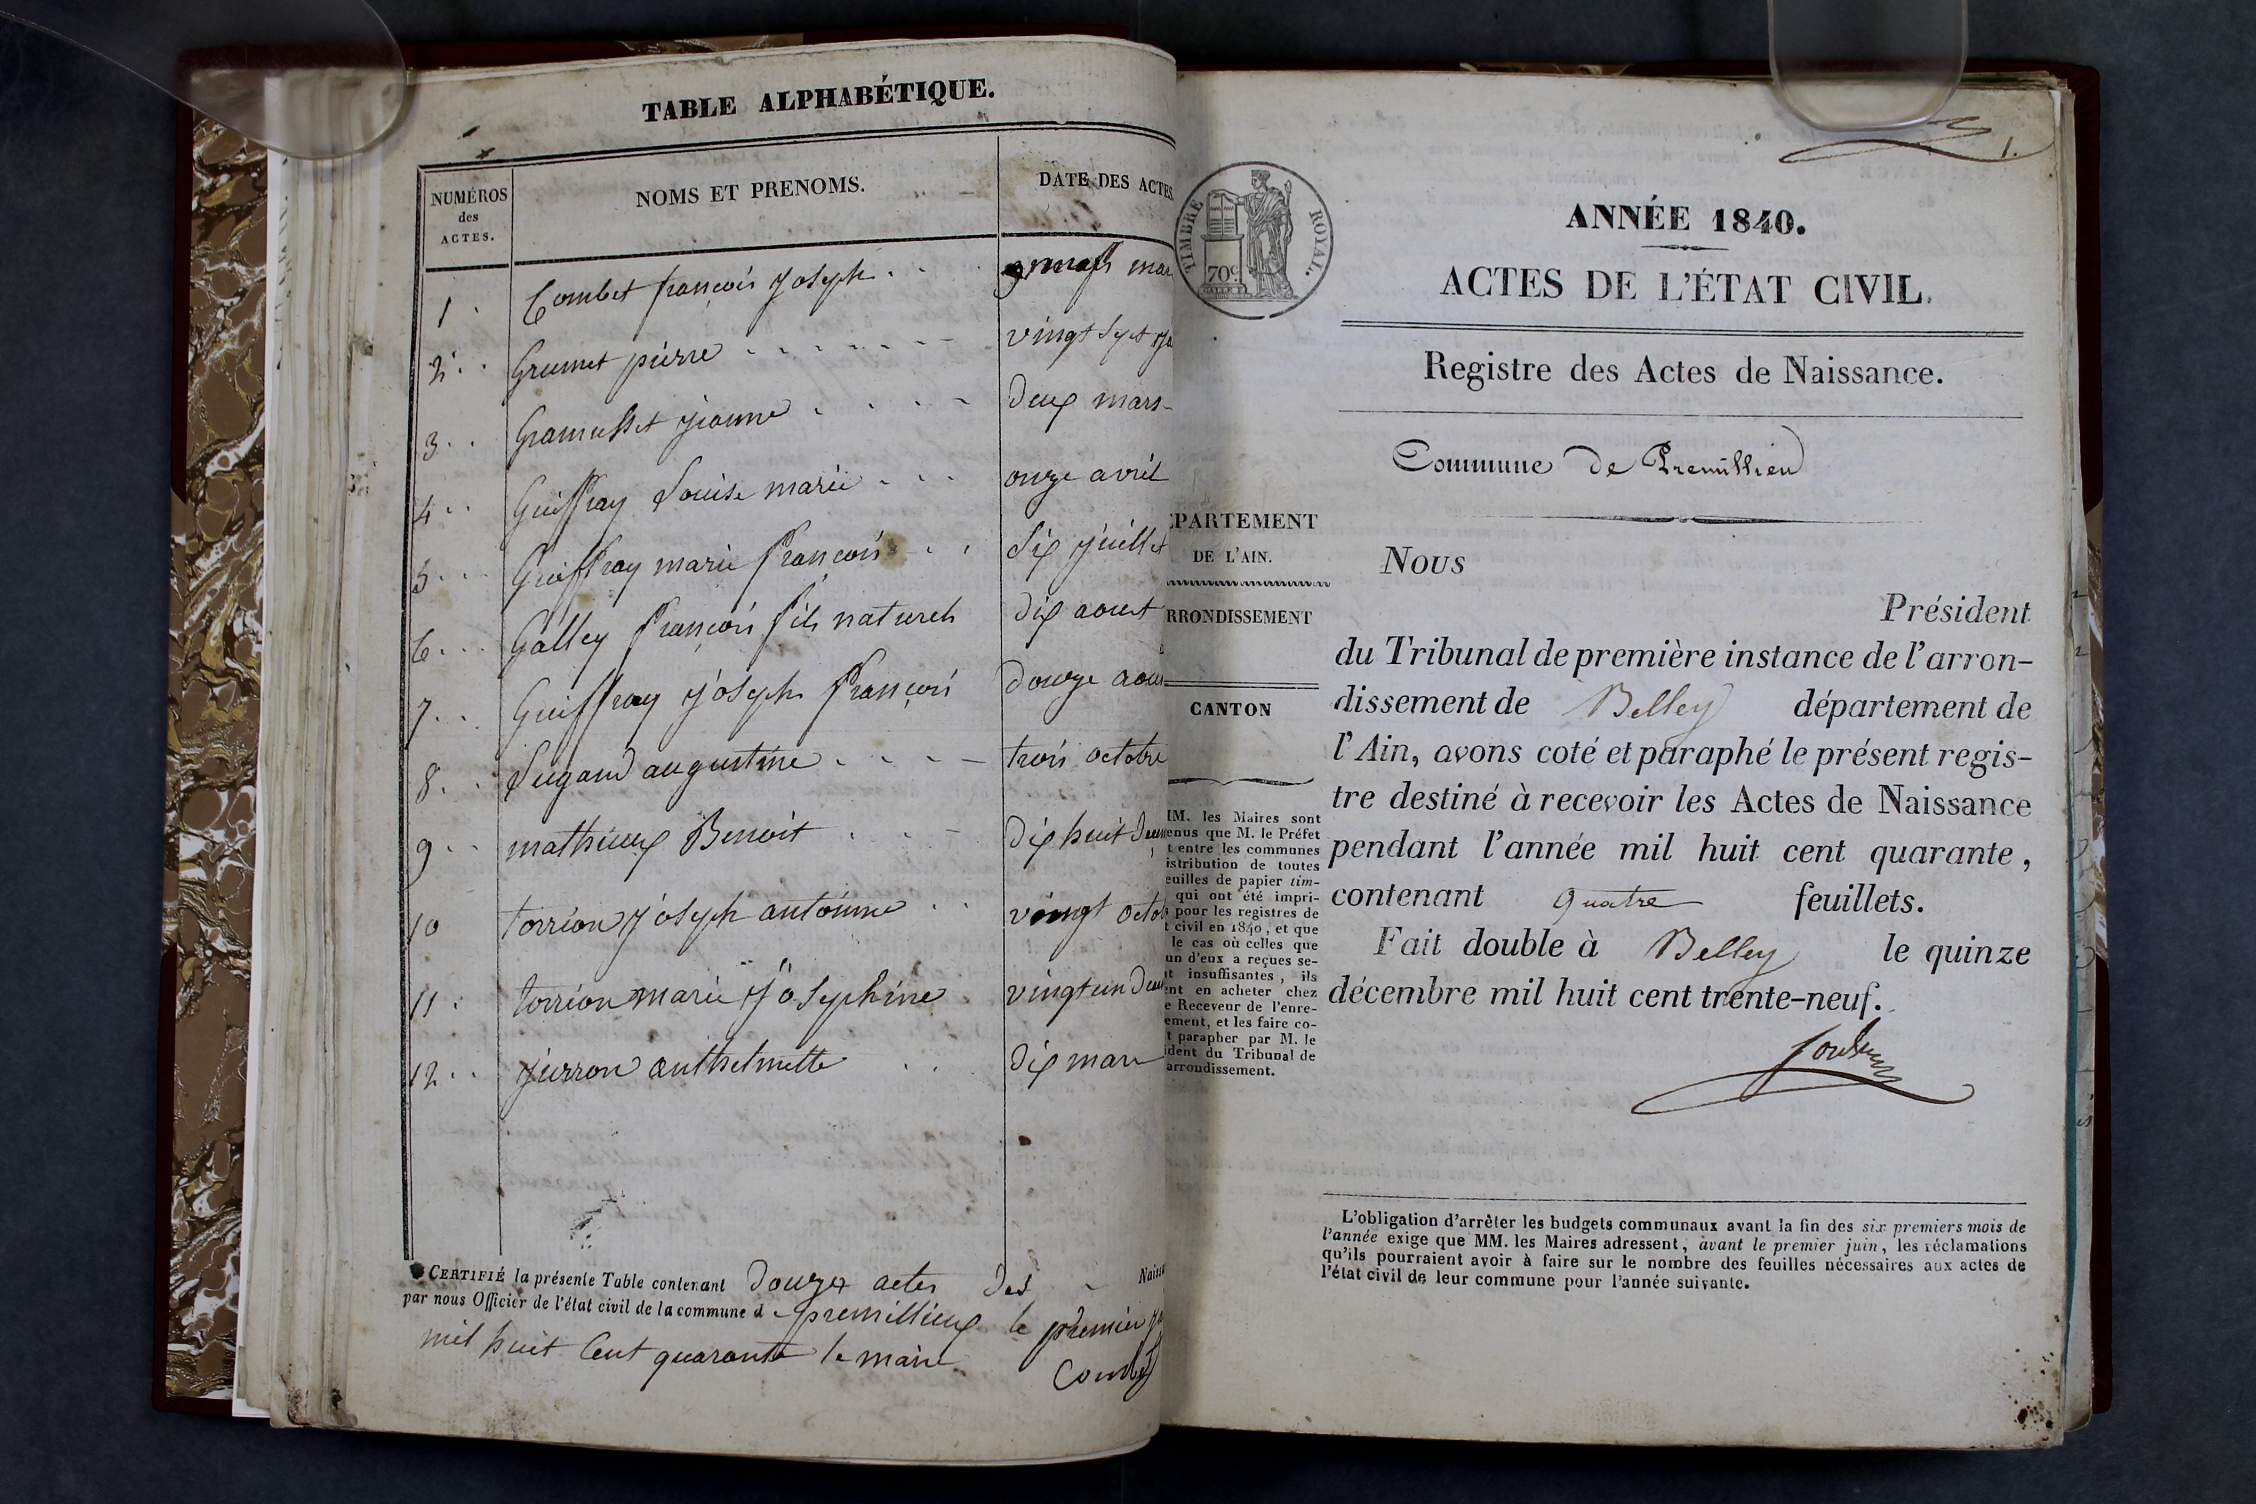 TABLE ALPHABÉTIQUE.
NUMÉROS des ACTES.
NOMS ET PRENOMS.
DATE DES ACTES
1 Combet françois Joseph mar
2 Grumet pierre vingt Sept Ja
3 Gramusset jeanne deux mars
4 Guiffray Louise marie onze avril
5 Guiffray marie françois Six Juillet
6 Galley françois fils naturel dix aout
7 Guiffray Joseph françois douze aou
8 Lugand augustine trois octobre
9 mathieux Benoit dix huit
10 torrion Joseph antoinne vingt octob
11 torrion marie Josephine vingt un
12 Jurron anthelmette dix mars
CERTIFIÉ la présente Table contenant douze actes des Naiss
par nous Officier de l'état civil de la commune d premillieux le premier Ja
mil huit Cent quarante le maire
Combet
1.
TIMBRE ROYAL.
70c.
ANNÉE 1840.
ACTES DE L'ÉTAT CIVIL.
Registre des Actes de Naissance.
Commune de Premillieu
EPARTEMENT
DE L'AIN.
RRONDISSEMENT
CANTON
MM. les Maires sont
enus que M. le Préfet
t entre les communes
istribution de toutes
euilles de papier tim-
qui ont été impri-
pour les registres de
t civil en 1840, et que
le cas où celles que
un d'eux a reçues se-
t insuffisantes, ils
ent en acheter chez
e Receveur de l'enre-
ement, et les faire co-
t parapher par M. le
ident du Tribunal de
arrondissement.
Nous
Président
du Tribunal de première instance de l'arron-
dissement de Belley département de
l'Ain, avons coté et paraphé le présent regis-
tre destiné à recevoir les Actes de Naissance
pendant l'année mil huit cent quarante,
contenant quatre feuillets.
Fait double à Belley le quinze
décembre mil huit cent trente-neuf.
L'obligation d'arrêter les budgets communaux avant la fin des six premiers mois de
l'année exige que MM. les Maires adressent, avant le premier juin, les réclamations
qu'ils pourraient avoir à faire sur le nombre des feuilles nécessaires aux actes de
l'état civil de leur commune pour l'année suivante.